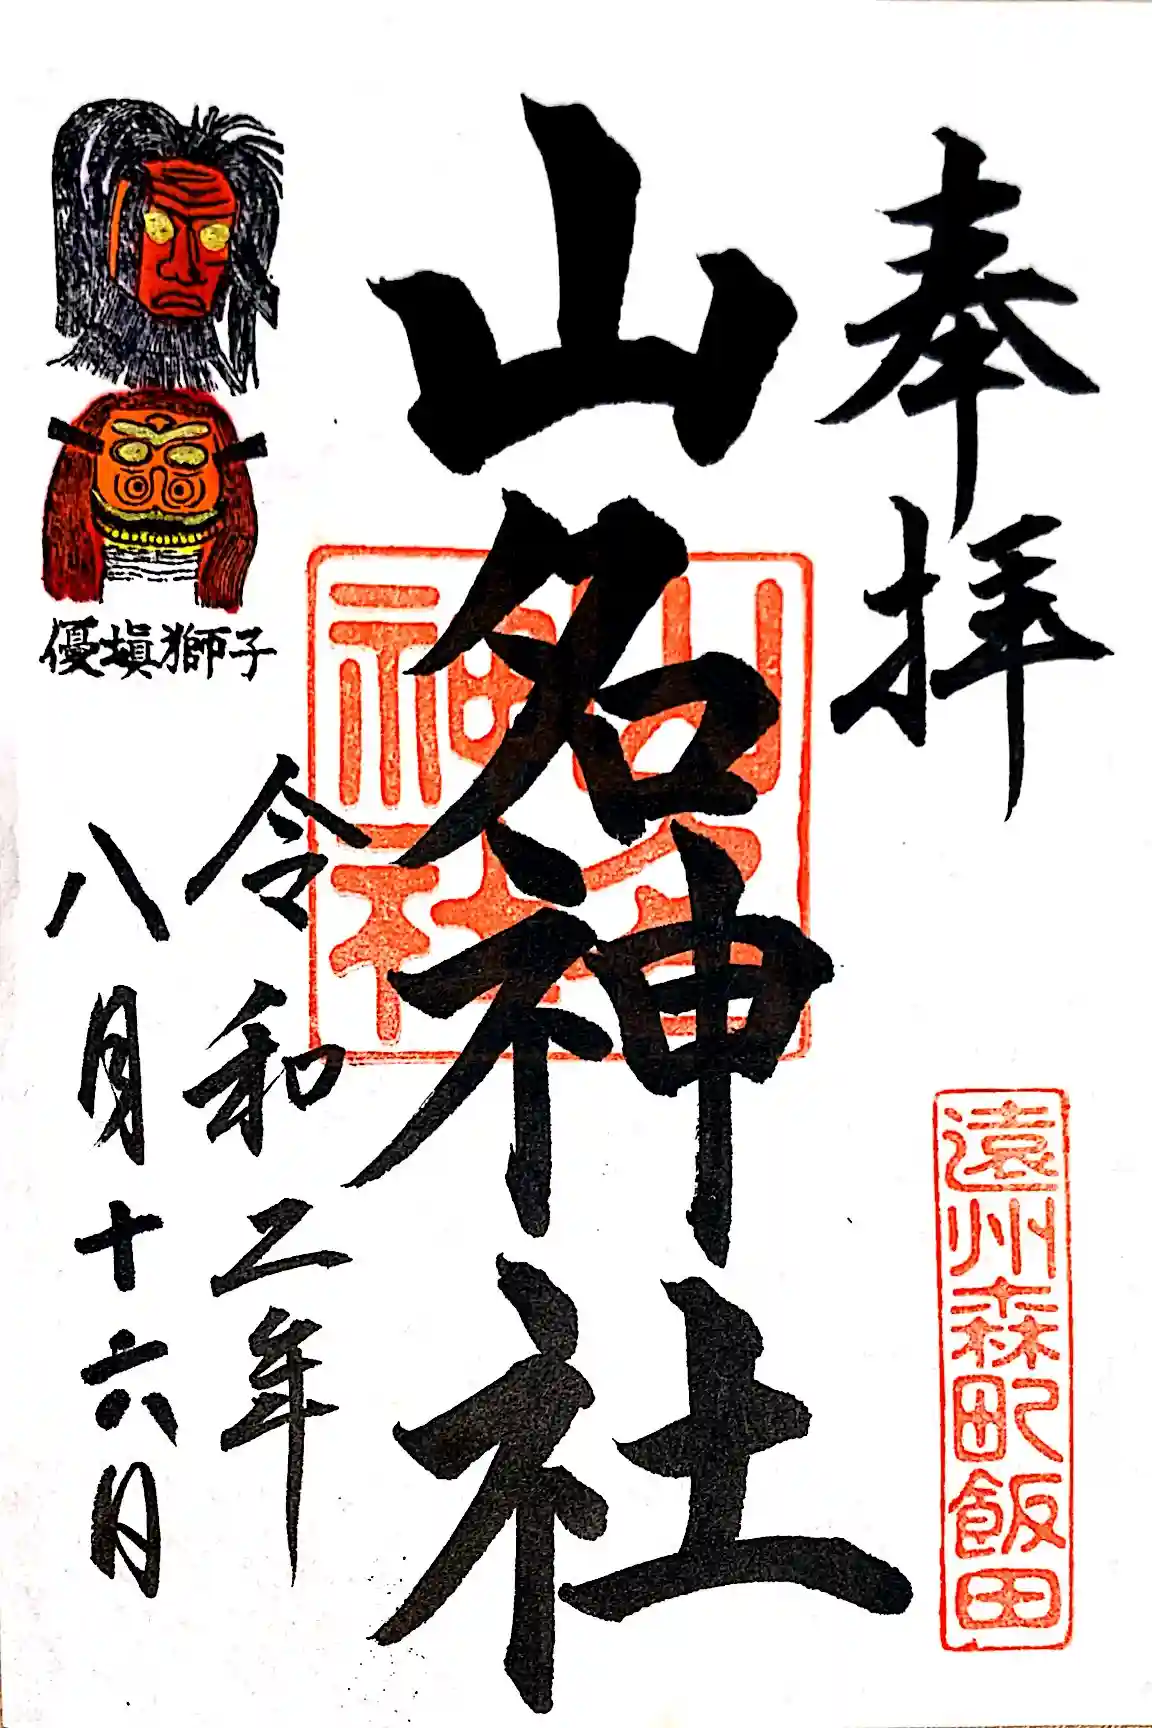 奉拝
遠州森町飯田
山名神社
山名
神社
令和二年
八月十六日
優塡獅子